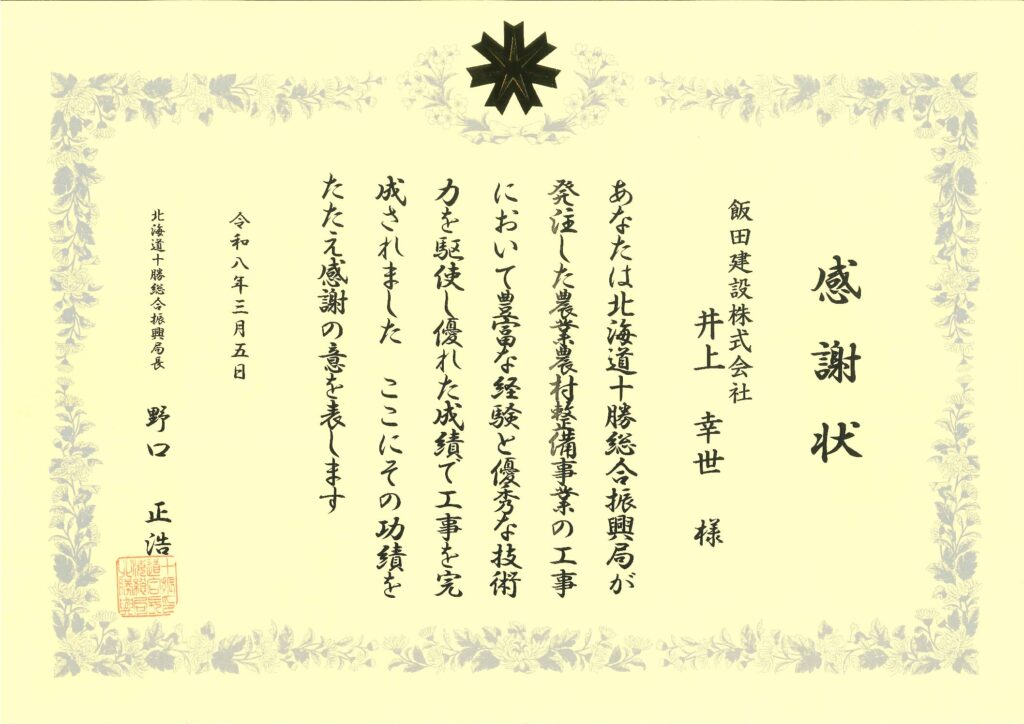 感謝状
飯田建設株式会社
井上 幸世 様
あなたは北海道十勝総合振興局が
発注した農業農村整備事業の工事
において豊富な経験と優秀な技術
力を駆使し優れた成績で工事を完
成されました ここにその功績を
たたえ感謝の意を表します
令和八年三月五日
北海道十勝総合振興局長 野口 正浩